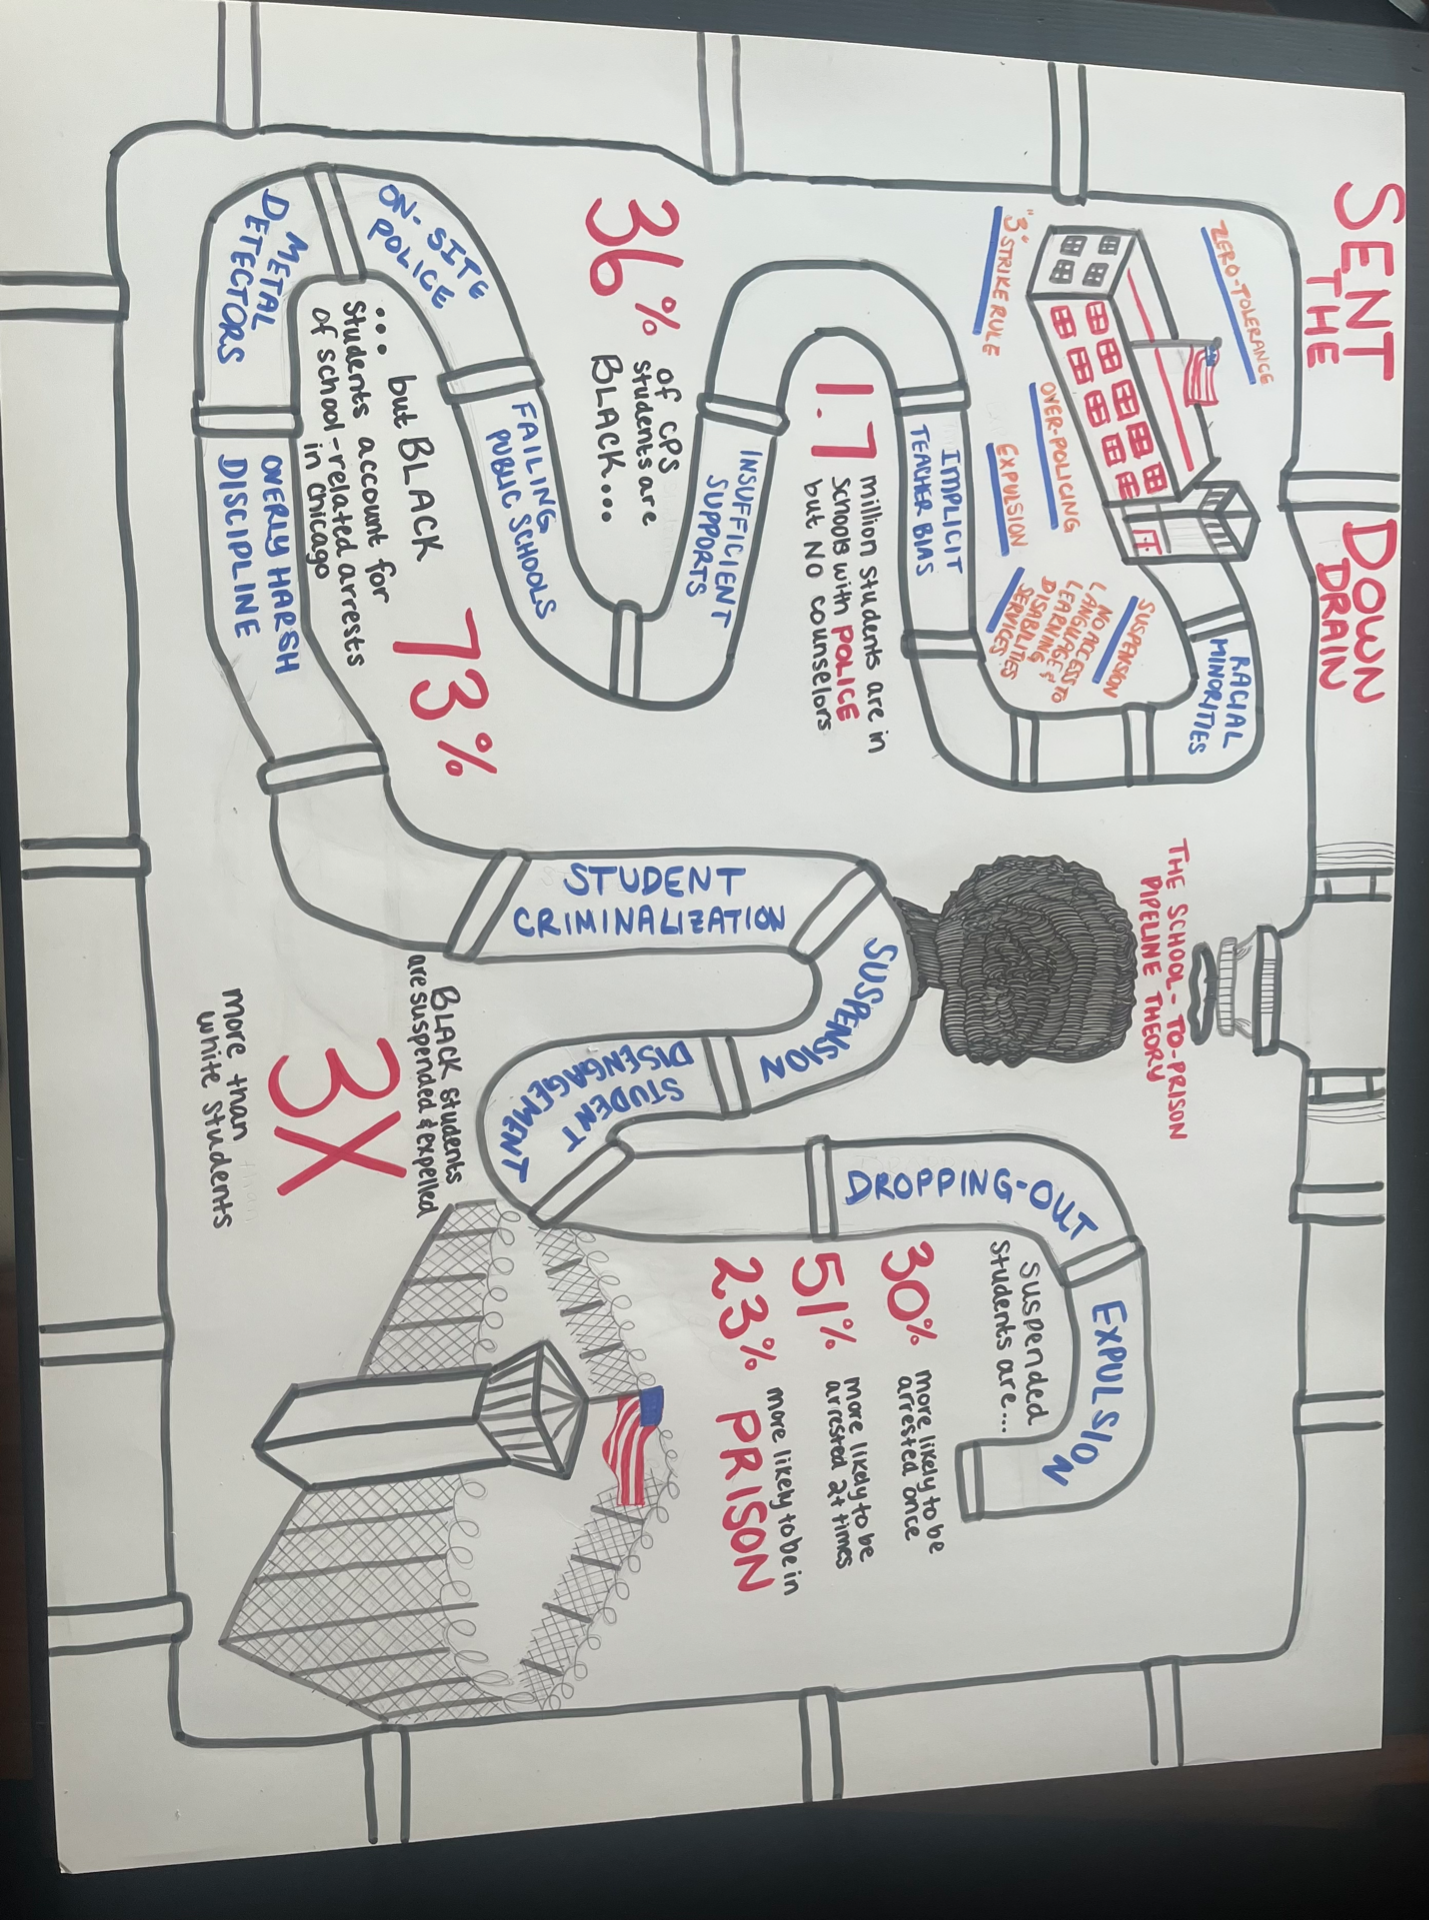 SENT
THE
DOWN
DRAIN
THE SCHOOL-TO-PRISON
PIPELINE THEORY
ZERO-TOLERANCE
"3" STRIKE RULE
OVER-POLICING
EXPULSION
SUSPENSION
NO ACCESS TO
LANGUAGE &
LEARNING
DISABILITIES
SERVICES
RACIAL
MINORITIES
IMPLICIT
TEACHER BIAS
1.7
million students are in
schools with POLICE
but NO counselors
INSUFFICIENT
SUPPORTS
36%
of CPS
students are
BLACK...
FAILING
PUBLIC SCHOOLS
ON-SITE
POLICE
... but BLACK
students account for
of school-related arrests
in Chicago
73%
METAL
DETECTORS
OVERLY HARSH
DISCIPLINE
STUDENT
CRIMINALIZATION
SUSPENSION
STUDENT
DISENGAGEMENT
BLACK students
are suspended & expelled
3X
more than
white students
DROPPING-OUT
EXPULSION
suspended
students are...
30%
more likely to be
arrested once
51%
more likely to be
arrested 2+ times
23%
more likely to be in
PRISON